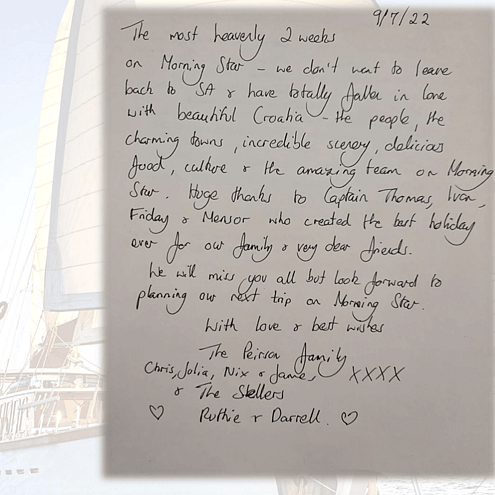 9/7/22
The most heavenly 2 weeks
on Morning Star - we don't want to leave
back to SA & have totally fallen in love
with beautiful Croatia - the people, the
charming towns, incredible scenery, delicious
food, culture & the amazing team on Morning
Star. Huge thanks to Captain Thomas, Ivan,
Friday & Mensor who created the best holiday
ever for our family & very dear friends.
We will miss you all but look forward to
planning our next trip on Morning Star.
With love & best wishes
The Peirson family
Chris, Julia, Nix & Jamie, XXXX
& The Skellers
♡ Ruthie & Darrell. ♡